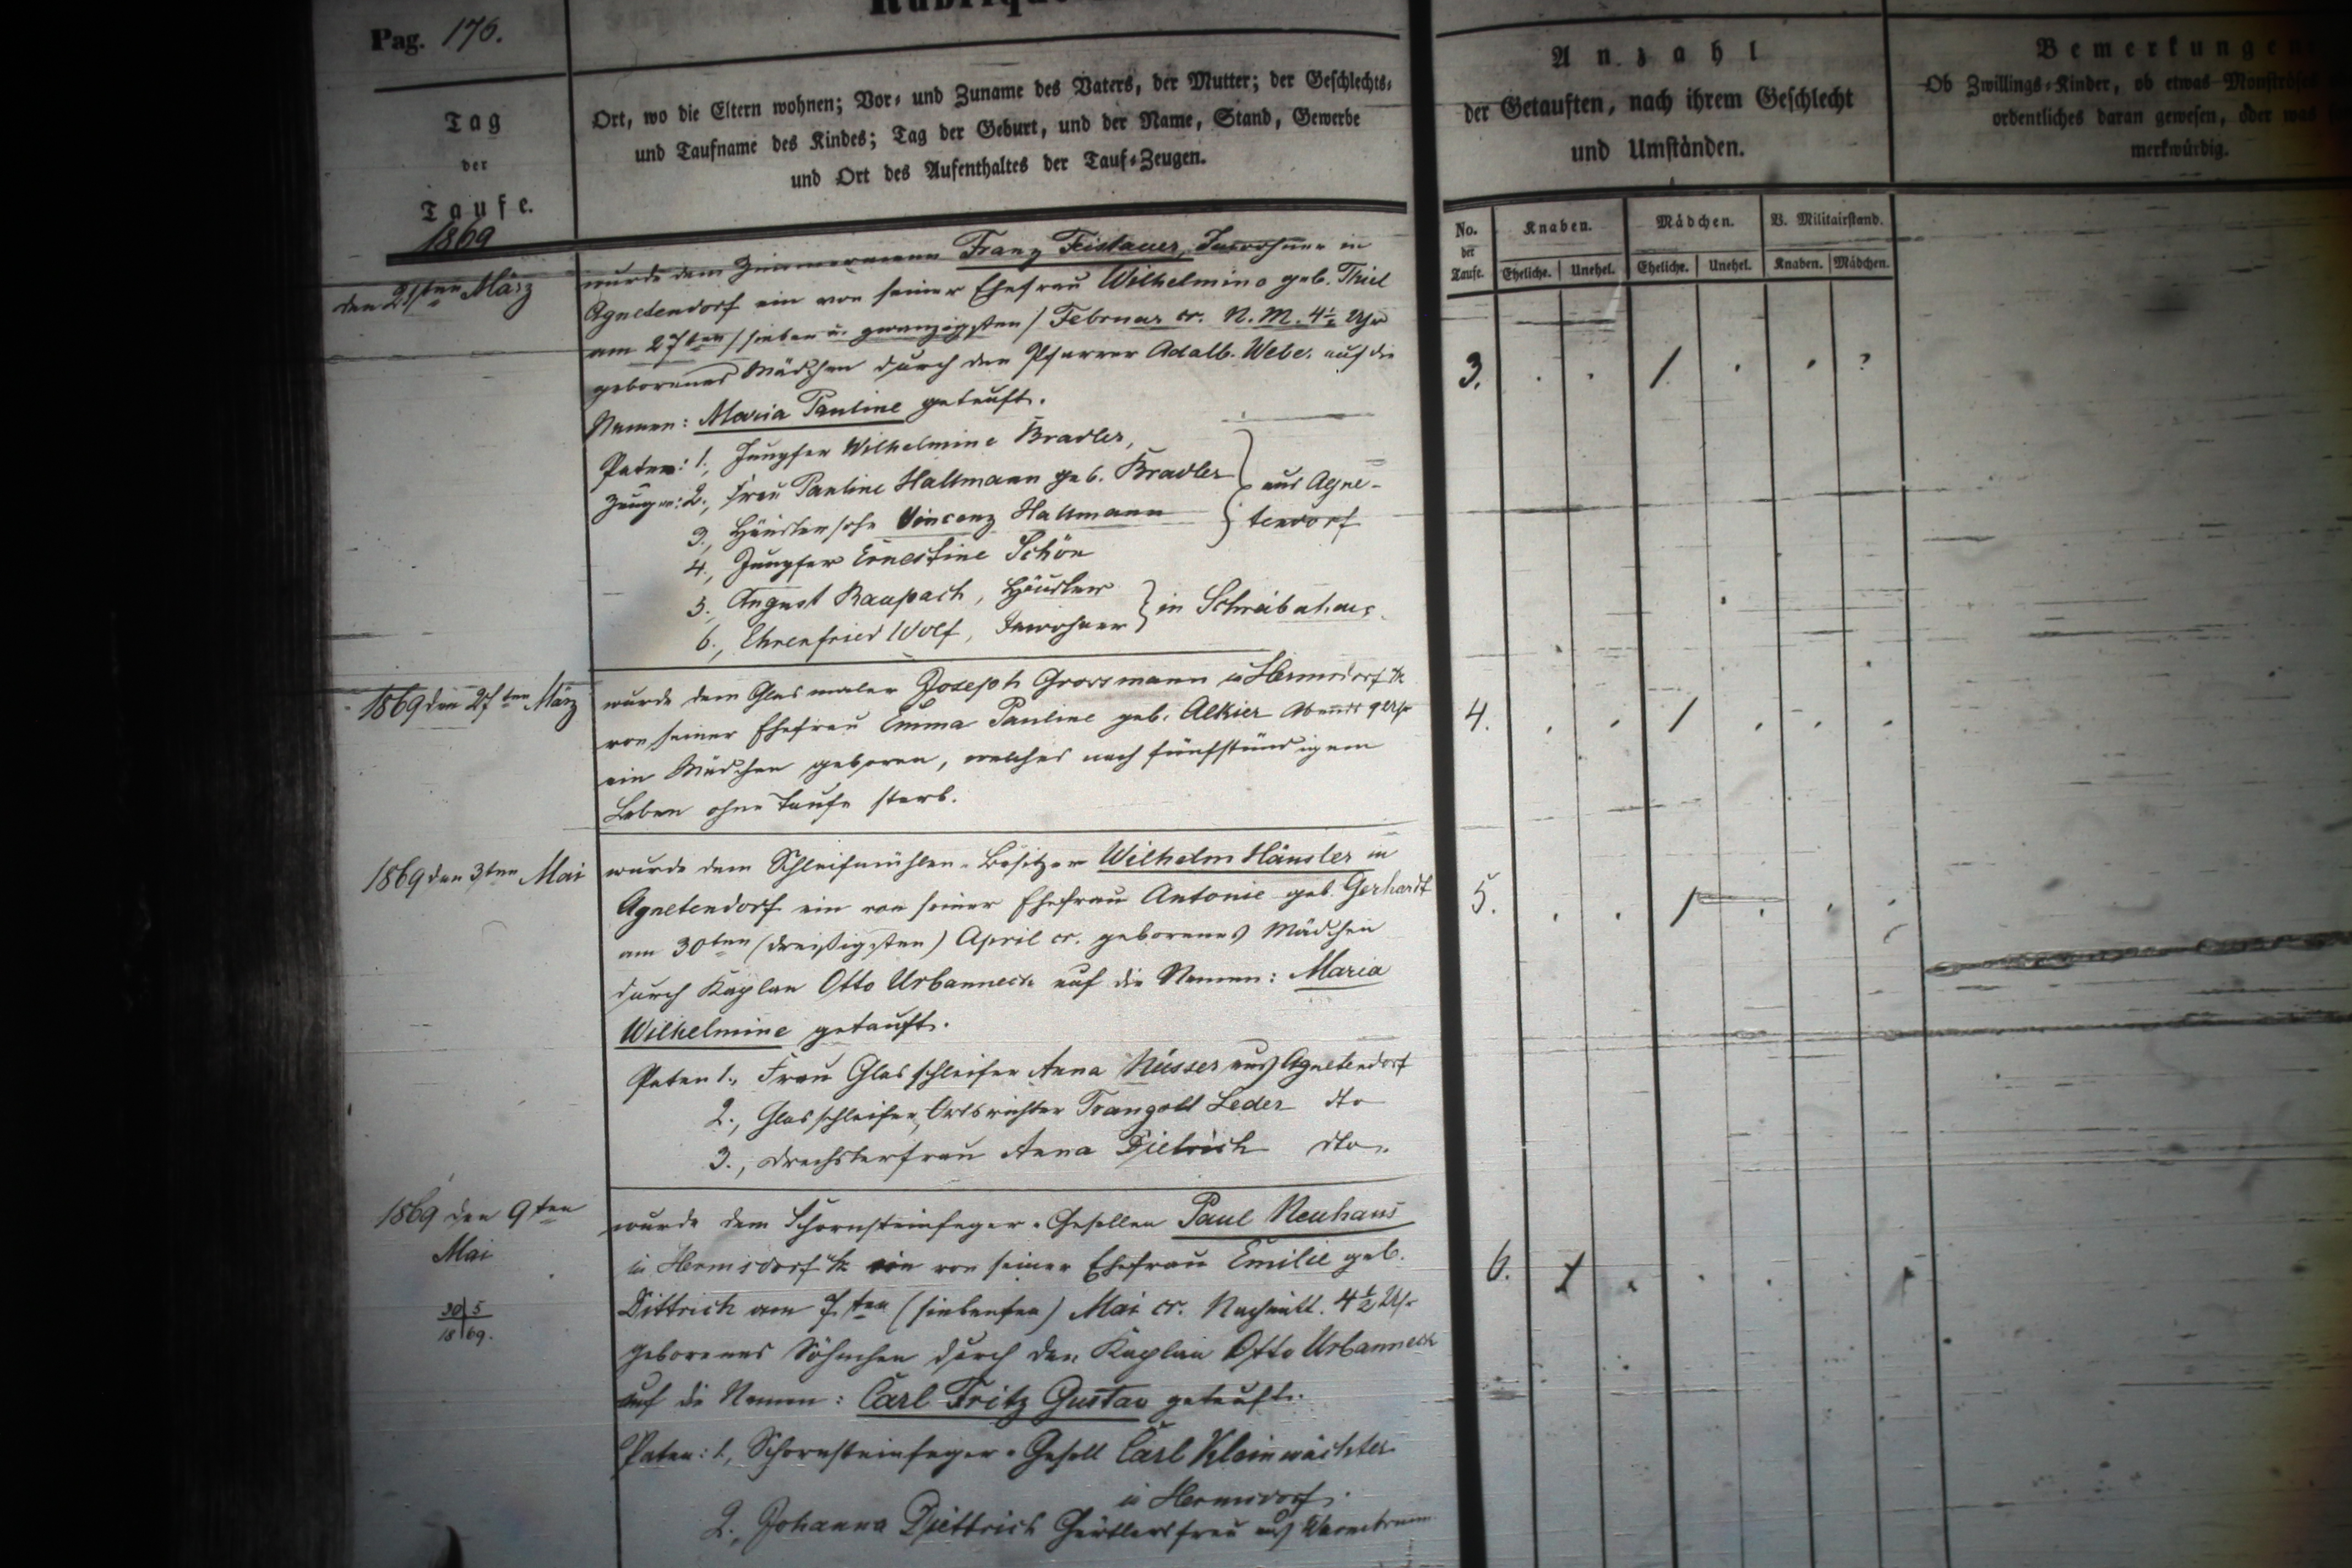 Pag. 176.
Tag
der
Taufe.
1869
Ort, wo die Eltern wohnen; Vor- und Zuname des Vaters, der Mutter; der Geschlechts-
und Taufname des Kindes; Tag der Geburt, und der Name, Stand, Gewerbe
und Ort des Aufenthaltes der Tauf-Zeugen.
Anzahl
der Getauften, nach ihrem Geschlecht
und Umständen.
Bemerkungen
Ob Zwillings-Kinder, ob etwas
ordentliches daran gewesen, oder was
merkwürdig.
No. der Taufe.
Knaben. Mädchen. V. Militairstand.
Eheliche. Unehel. Eheliche. Unehel. Knaben. Mädchen.
den 21sten März
wurde dem Zimmermann Franz Feistauer, Inwohner in
Agnetendorf ein von seiner Ehefrau Wilhelmine geb. Thiel
am 27ten / sieben u. zwanzigsten / Februar cr. N. M. 4½ Uhr
geborenes Mädchen durch den Pfarrer Adalb. Weber auf die
Namen: Maria Pauline getauft.
3. 1
Paten: 1., Jungfer Wilhelmine Bradler,
Zeugen: 2., Frau Pauline Hallmann geb. Bradler
3., Häuslersohn Vincenz Hallmann
aus Agne-
tendorf
4., Jungfer Ernestine Schön
5. August Raupach, Häusler
6., Ehrenfried Wolf, Inwohner
in Schreiberhau.
1869 den 27ten März
wurde dem Glasmaler Joseph Grossmann in Hermsdorf u/k
von seiner Ehefrau Emma Pauline geb. Alkier Abends 9 Uhr
ein Mädchen geboren, welches nach fünfstündigem
Leben ohne Taufe starb.
4. 1
1869 den 3ten Mai
wurde dem Schleifmühlen-Besitzer Wilhelm Häusler in
Agnetendorf ein von seiner Ehefrau Antonie geb. Gerhardt
am 30ten (dreißigsten) April cr. geborenes Mädchen
durch Kaplan Otto Urbanneck auf die Namen: Maria
Wilhelmine getauft.
5. 1
Paten 1., Frau Glasschleifer Anna Nüsser aus Agnetendorf
2., Glasschleifer, Ortsrichter Traugott Leder dto
3., Drechslerfrau Anna Dietrich dto.
1869 den 9ten
Mai
30 5
18 69.
wurde dem Schornsteinfeger-Gesellen Paul Neuhaus
in Hermsdorf u/k ein von seiner Ehefrau Emilie geb.
Dittrich am 7ten (siebenten) Mai cr. Nachmitt. 4½ Uhr
geborenes Söhnchen durch den Kaplan Otto Urbanneck
auf die Namen: Carl Fritz Gustav getauft.
6. 1
Paten: 1., Schornsteinfeger-Gesell Carl Kleinwächter
in Hermsdorf.
2., Johanna Diettrich Gürtlersfrau aus Warmbrunn